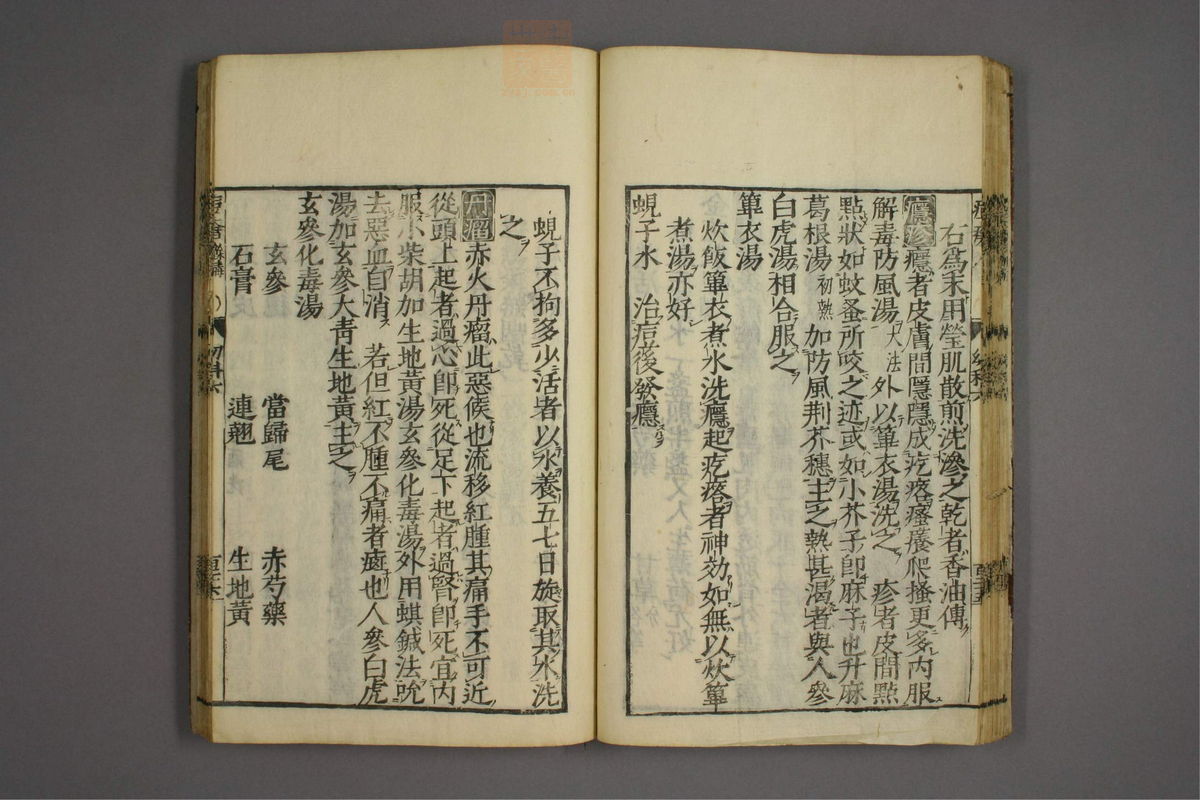 右爲末用瑩肌散煎洗滲之乾者香油傅
癮疹癮者皮膚間隱隱成疙瘩瘙癢爬搔更多內服
解毒防風湯大法外以箄衣湯洗之 疹者皮間點
點狀如蚊蚤所咬之迹或如小芥子卽麻子也升麻
葛根湯初熱加防風荆芥穗主之熱甚渴者與人參
白虎湯相合服之
箄衣湯
炊飯箄衣煮水洗癮起疙瘩者神効如無以炊箄
煮湯亦好
蜆子水 治痘後發癮
蜆子不拘多少活者以水養五七日旋取其水洗
之
丹瘤赤火丹瘤此惡候也流移紅腫其痛手不可近
從頭上起者過心卽死從足下起者過腎卽死宜內
服小柴胡加生地黃湯玄參化毒湯外用蜞鍼法吮
去惡血自消 若但紅不腫不痛者 也人參白虎
湯加玄參大靑生地黃主之
玄參化毒湯
玄參 當歸尾 赤芍藥
石膏 連翹 生地黃